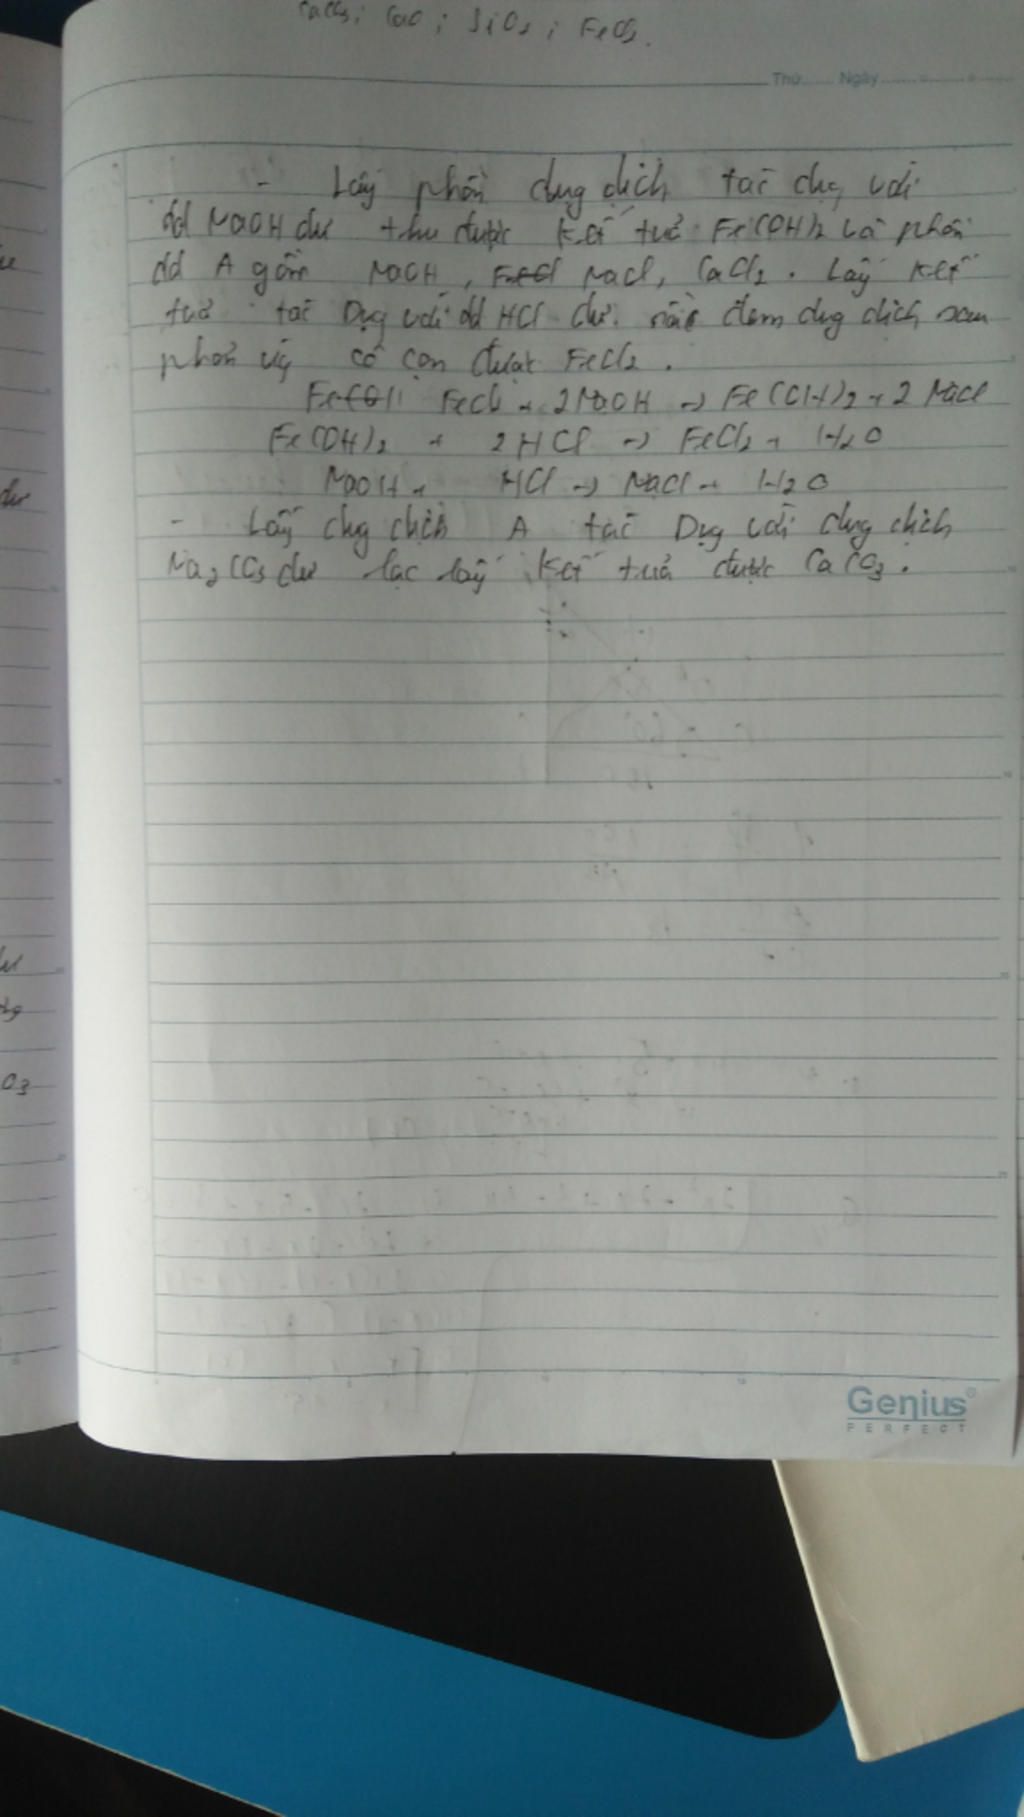 CaCO3; CaO; SiO2; FeCl2.
Thứ Ngày
- Lấy phần dung dịch tác dụng với
dd NaOH dư thu được kết tủa Fe(OH)2 và phần
dd A gồm NaOH, FeCl NaCl, CaCl2. Lấy kết
tủa tác dụng với dd HCl dư. rồi đem dung dịch sau
phản ứng cô cạn được FeCl2.
Fe(OH FeCl2 + 2NaOH → Fe(OH)2 + 2 NaCl
Fe(OH)2 + 2HCl → FeCl2 + H2O
NaOH + HCl → NaCl + H2O
- Lấy dung dịch A tác dụng với dung dịch
Na2CO3 dư lọc lấy kết tủa được CaCO3.
dư
O3
Genius
PERFECT